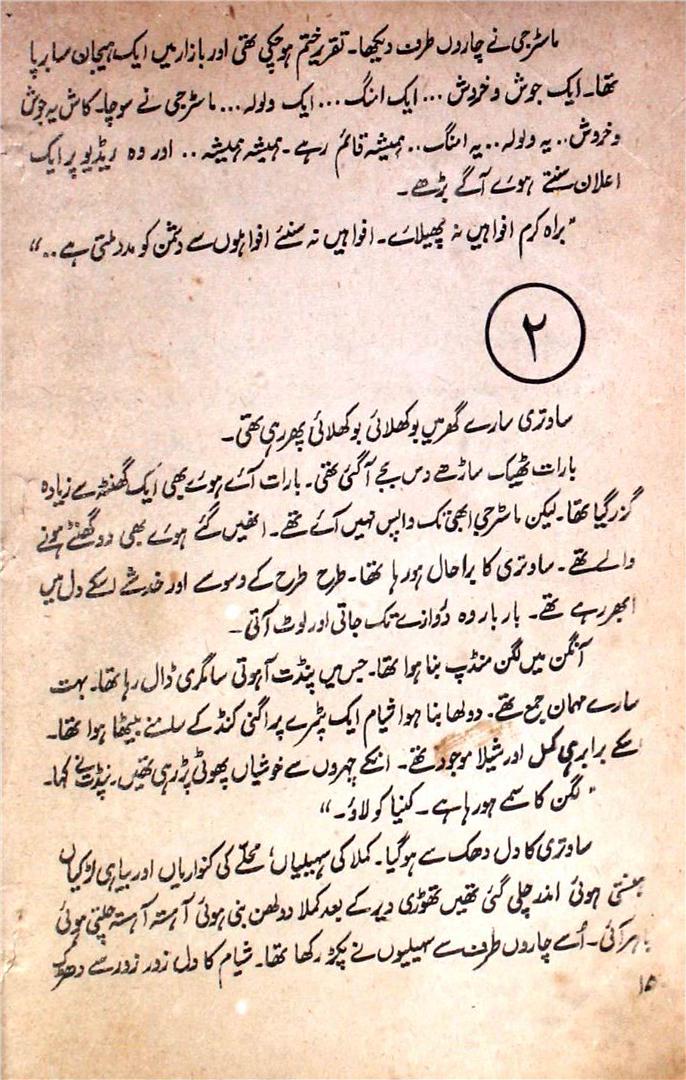 ماسٹر جی نے چاروں طرف دیکھا۔ تقریر ختم ہو چکی تھی اور بازار میں ایک ہیجان سا برپا
تھا۔ ایک جوش و خروش ... ایک امنگ ... ایک ولولہ ... ماسٹر جی نے سوچا۔ کاش یہ جوش
و خروش .. یہ ولولہ .. یہ امنگ .. ہمیشہ قائم رہے ۔ ہمیشہ ہمیشہ .. اور وہ ریڈیو پر ایک
اعلان سنتے ہوئے آگے بڑھے ۔
"براہ کرم افواہیں نہ پھیلائے ۔ افواہیں نہ سنئے افواہوں سے دشمن کو مدد ملتی ہے .. "
۲
ساوتری سارے گھر میں بوکھلائی بوکھلائی پھر رہی تھی۔
بارات ٹھیک ساڑھے دس بجے آ گئی تھی۔ بارات آئے ہوئے بھی ایک گھنٹہ سے زیادہ
گزر گیا تھا۔ لیکن ماسٹر جی ابھی تک واپس نہیں آئے تھے۔ انھیں گئے ہوئے بھی دو گھنٹے ہونے
والے تھے ۔ ساوتری کا برا حال ہو رہا تھا۔ طرح طرح کے وسوسے اور خدشے اسکے دل میں
ابھر رہے تھے۔ بار بار وہ دروازے تک جاتی اور لوٹ آتی –
آنگن میں لگن منڈپ بنا ہوا تھا۔ جس میں پنڈت آہوتی سامگری ڈال رہا تھا۔ بہت
سارے مہمان جمع تھے۔ دولھا بنا ہوا شیام ایک پٹرے پر اگنی کنڈ کے سامنے بیٹھا ہوا تھا۔
اسکے برابر ہی کمل اور شیلا موجود تھے۔ انکے چہروں سے خوشیاں پھوٹی پڑ رہی تھیں۔ پنڈت نے کہا۔
"لگن کا سمے ہو رہا ہے ۔ کنیا کو لاؤ ۔"
ساوتری کا دل دھک سے ہو گیا۔ کملا کی سہیلیاں، محلے کی کنواریاں اور بیاہی لڑکیاں
ہنستی ہوئی اندر چلی گئی تھیں تھوڑی دیر کے بعد کملا دولھن بنی ہوئی آہستہ آہستہ چلتی ہوئی
باہر آئی ۔ اُسے چاروں طرف سے سہیلیوں نے پکڑ رکھا تھا۔ شیام کا دل زور زور سے دھڑک
۱۵